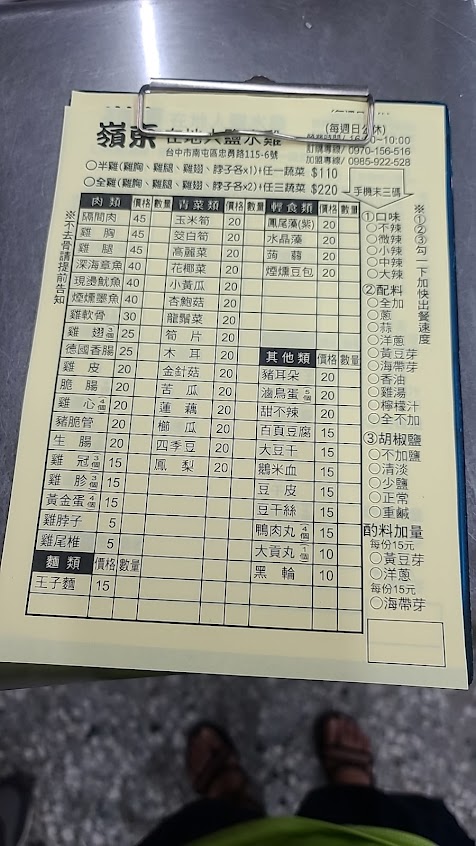 (每週日公休)
嶺東 在地人鹽水雞
訂購專線/ 0970-156-516
台中市南屯區忠勇路115-6號
加盟專線/ 0985-922-528
○半雞(雞胸、雞腿、雞翅、脖子各x1)+任一蔬菜 $110
○全雞(雞胸、雞腿、雞翅、脖子各x2)+任三蔬菜 $220
手機末三碼
※不去骨請提前告知
肉類 價格 數量
隔間肉 45
雞胸 45
雞腿 45
深海章魚 40
現燙魷魚 40
煙燻墨魚 40
雞軟骨 30
雞翅3個 25
德國香腸 25
雞皮 20
脆腸 20
雞心4個 20
豬脆管 20
生腸 20
雞冠3個 15
雞胗3個 15
黃金蛋4個 15
雞脖子 5
雞尾椎 5
麵類 價格 數量
王子麵 15
青菜類 價格 數量
玉米筍 20
茭白筍 20
高麗菜 20
花椰菜 20
小黃瓜 20
杏鮑菇 20
龍鬚菜 20
筍片 20
木耳 20
金針菇 20
苦瓜 20
蓮藕 20
櫛瓜 20
四季豆 20
鳳梨 20
輕食類 價格 數量
鳳尾藻(紫) 20
水晶藻 20
蒟蒻 20
煙燻豆包 20
其他類 價格 數量
豬耳朵 20
滷鳥蛋5個 20
甜不辣 20
百頁豆腐 15
大豆干 15
鵝米血 15
豆皮 15
豆干絲 15
鴨肉丸4個 15
大貢丸1個 10
黑輪 10
※①②③勾一下加快出餐速度
①口味
○不辣
○微辣
○小辣
○中辣
○大辣
②配料
○全加
○蔥
○蒜
○洋蔥
○黃豆芽
○海帶芽
○香油
○雞湯
○檸檬汁
○全不加
③胡椒鹽
○不加鹽
○清淡
○少鹽
○正常
○重鹹
酌料加量
每份15元
○黃豆芽
○洋蔥
每份15元
○海帶芽